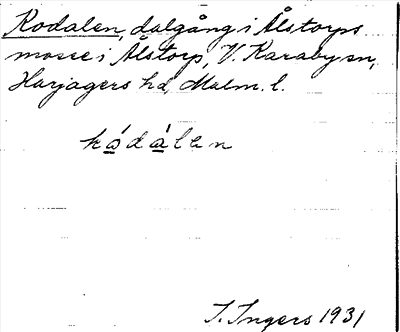 Kodalen, dalgång i Ålstorps
mosse i Ålstorp, V. Karaby sn,
Harjagers hd, Malm. l.
kódálen
I. Ingers 1931